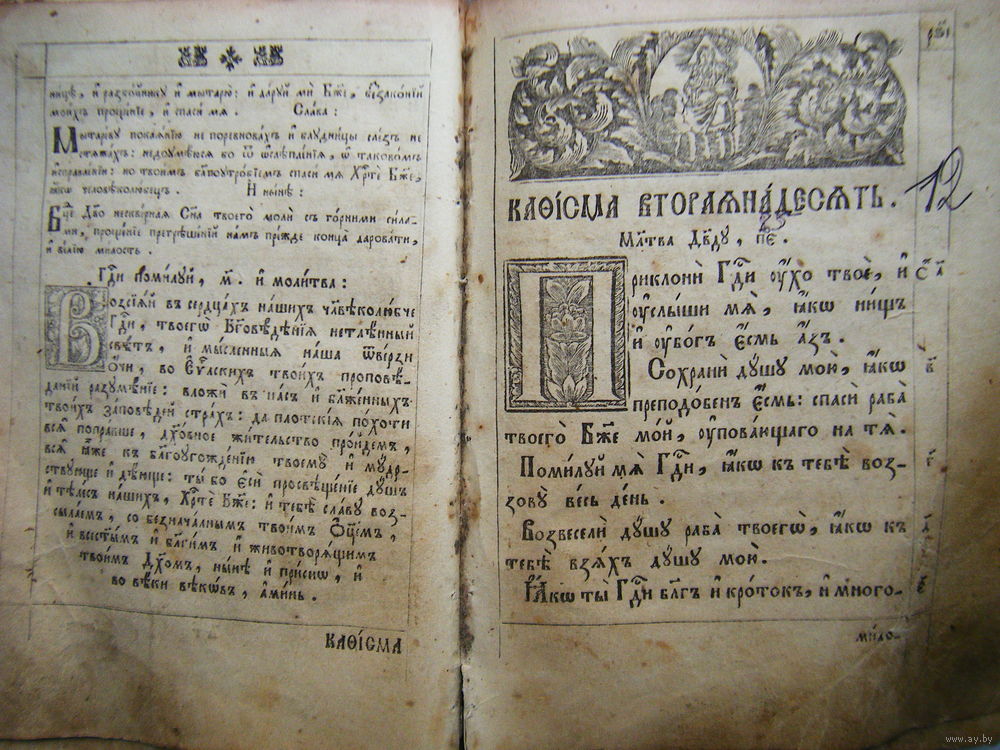 ницѣ, и҆ разбойнику и҆ мытарю: и҆ даруй ми Бж҃е, беззаконїй
моихъ прощенїе, и҆ спаси мя. Слава:
Мытареву покаянїю не поревновахъ и҆ блудницы слезъ не
стяжахъ: недоумѣюся во ѿ ѡ҆слѣпленїя, ѿ таковомъ
и҆справленїи: но твоимъ бл҃гоутробїемъ спаси мя Хрⷭ҇те Бж҃е,
ꙗ҆кѡ человѣколюбецъ. И҆ нынѣ:
Бц҃е Дв҃о нескверная Сн҃а твоего моли съ горними сила-
ми, прощенїе прегрѣшенїй намъ прежде конца даровати,
и҆ велїю милость.
Гдⷭ҇и помилуй, м҃. и҆ молитва:
Возсїяй въ сердцахъ нашихъ чл҃вѣколюбче
Гдⷭ҇и, твоегѡ Бг҃овѣденїя нетлѣнный
свѣтъ, и҆ мысленныя наша ѿверзи
ѻ҆чи, во Е҆ѵⷢ҇лскихъ твоихъ проповѣ-
данїй разумѣнїе: вложи въ насъ и҆ блаженныхъ
твоихъ заповѣдей страхъ: да плотскїя похоти
вся поправше, дх҃овное жительство пройдемъ,
вся ꙗ҆же къ бл҃гоугожденїю твоему и҆ мудр-
ствующе и҆ дѣюще: ты бо є҆си просвѣщенїе душъ
и҆ тѣлесъ нашихъ, Хрⷭ҇те Бж҃е: и҆ тебѣ славу воз-
сылаемъ, со безначалнымъ твоимъ Ѻ҆ц҃емъ,
и҆ всест҃ымъ и҆ бл҃гимъ и҆ животворящимъ
твоимъ Дх҃омъ, нынѣ и҆ присно, и҆
во вѣки вѣковъ, а҆минь.
КАѲІСМА
КАѲІСМА ВТОРАЯНАДЕСЯТЬ.
12
85
Мл҃тва Дв҃ду, п҃є.
Приклони Гдⷭ҇и ᲂу҆хо твое, и҆
ᲂу҆слыши мя, ꙗ҆кѡ нищъ
и҆ ᲂу҆богъ є҆смь а҆зъ.
Сохрани душу мою, ꙗ҆кѡ
в҃
преподобенъ є҆смь: спаси раба
твоего Бж҃е мой, ᲂу҆повающаго на тя.
Помилуй мя Гдⷭ҇и, ꙗ҆кѡ къ тебѣ воз-
г҃
зову весь день.
Возвесели душу раба твоегѡ, ꙗ҆кѡ къ
д҃
тебѣ взяхъ душу мою.
Ꙗ҆кѡ ты Гдⷭ҇и бл҃гъ и҆ кротокъ, и҆ много-
є҃
мило-
www.ay.by